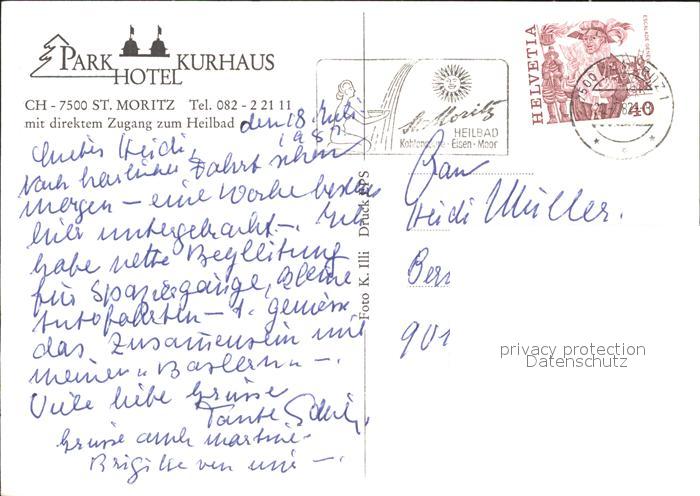 PARK HOTEL KURHAUS
CH - 7500 ST. MORITZ Tel. 082 - 2 21 11
mit direktem Zugang zum Heilbad
den 18. Juli
198
Liebes Heidi,
Nach herrlicher Fahrt schon
morgen – eine Woche bestens
hier untergebracht –. Ich
habe nette Begleitung
für Spaziergänge, kleine
Autofahrten – u. geniesse
das Zusammensein mit
meinen "Baslern" –.
Viele liebe Grüsse
Tante
Grüsse auch Martin
Brigitte von mir –.
Foto K. Illi Druck
HELVETIA
ESCALADE GENÈVE
40
7500 ST. MORITZ 1
St. Moritz
HEILBAD
Kohlensäure - Eisen - Moor
Frau
Heidi Müller.
Ber
901
privacy protection
Datenschutz